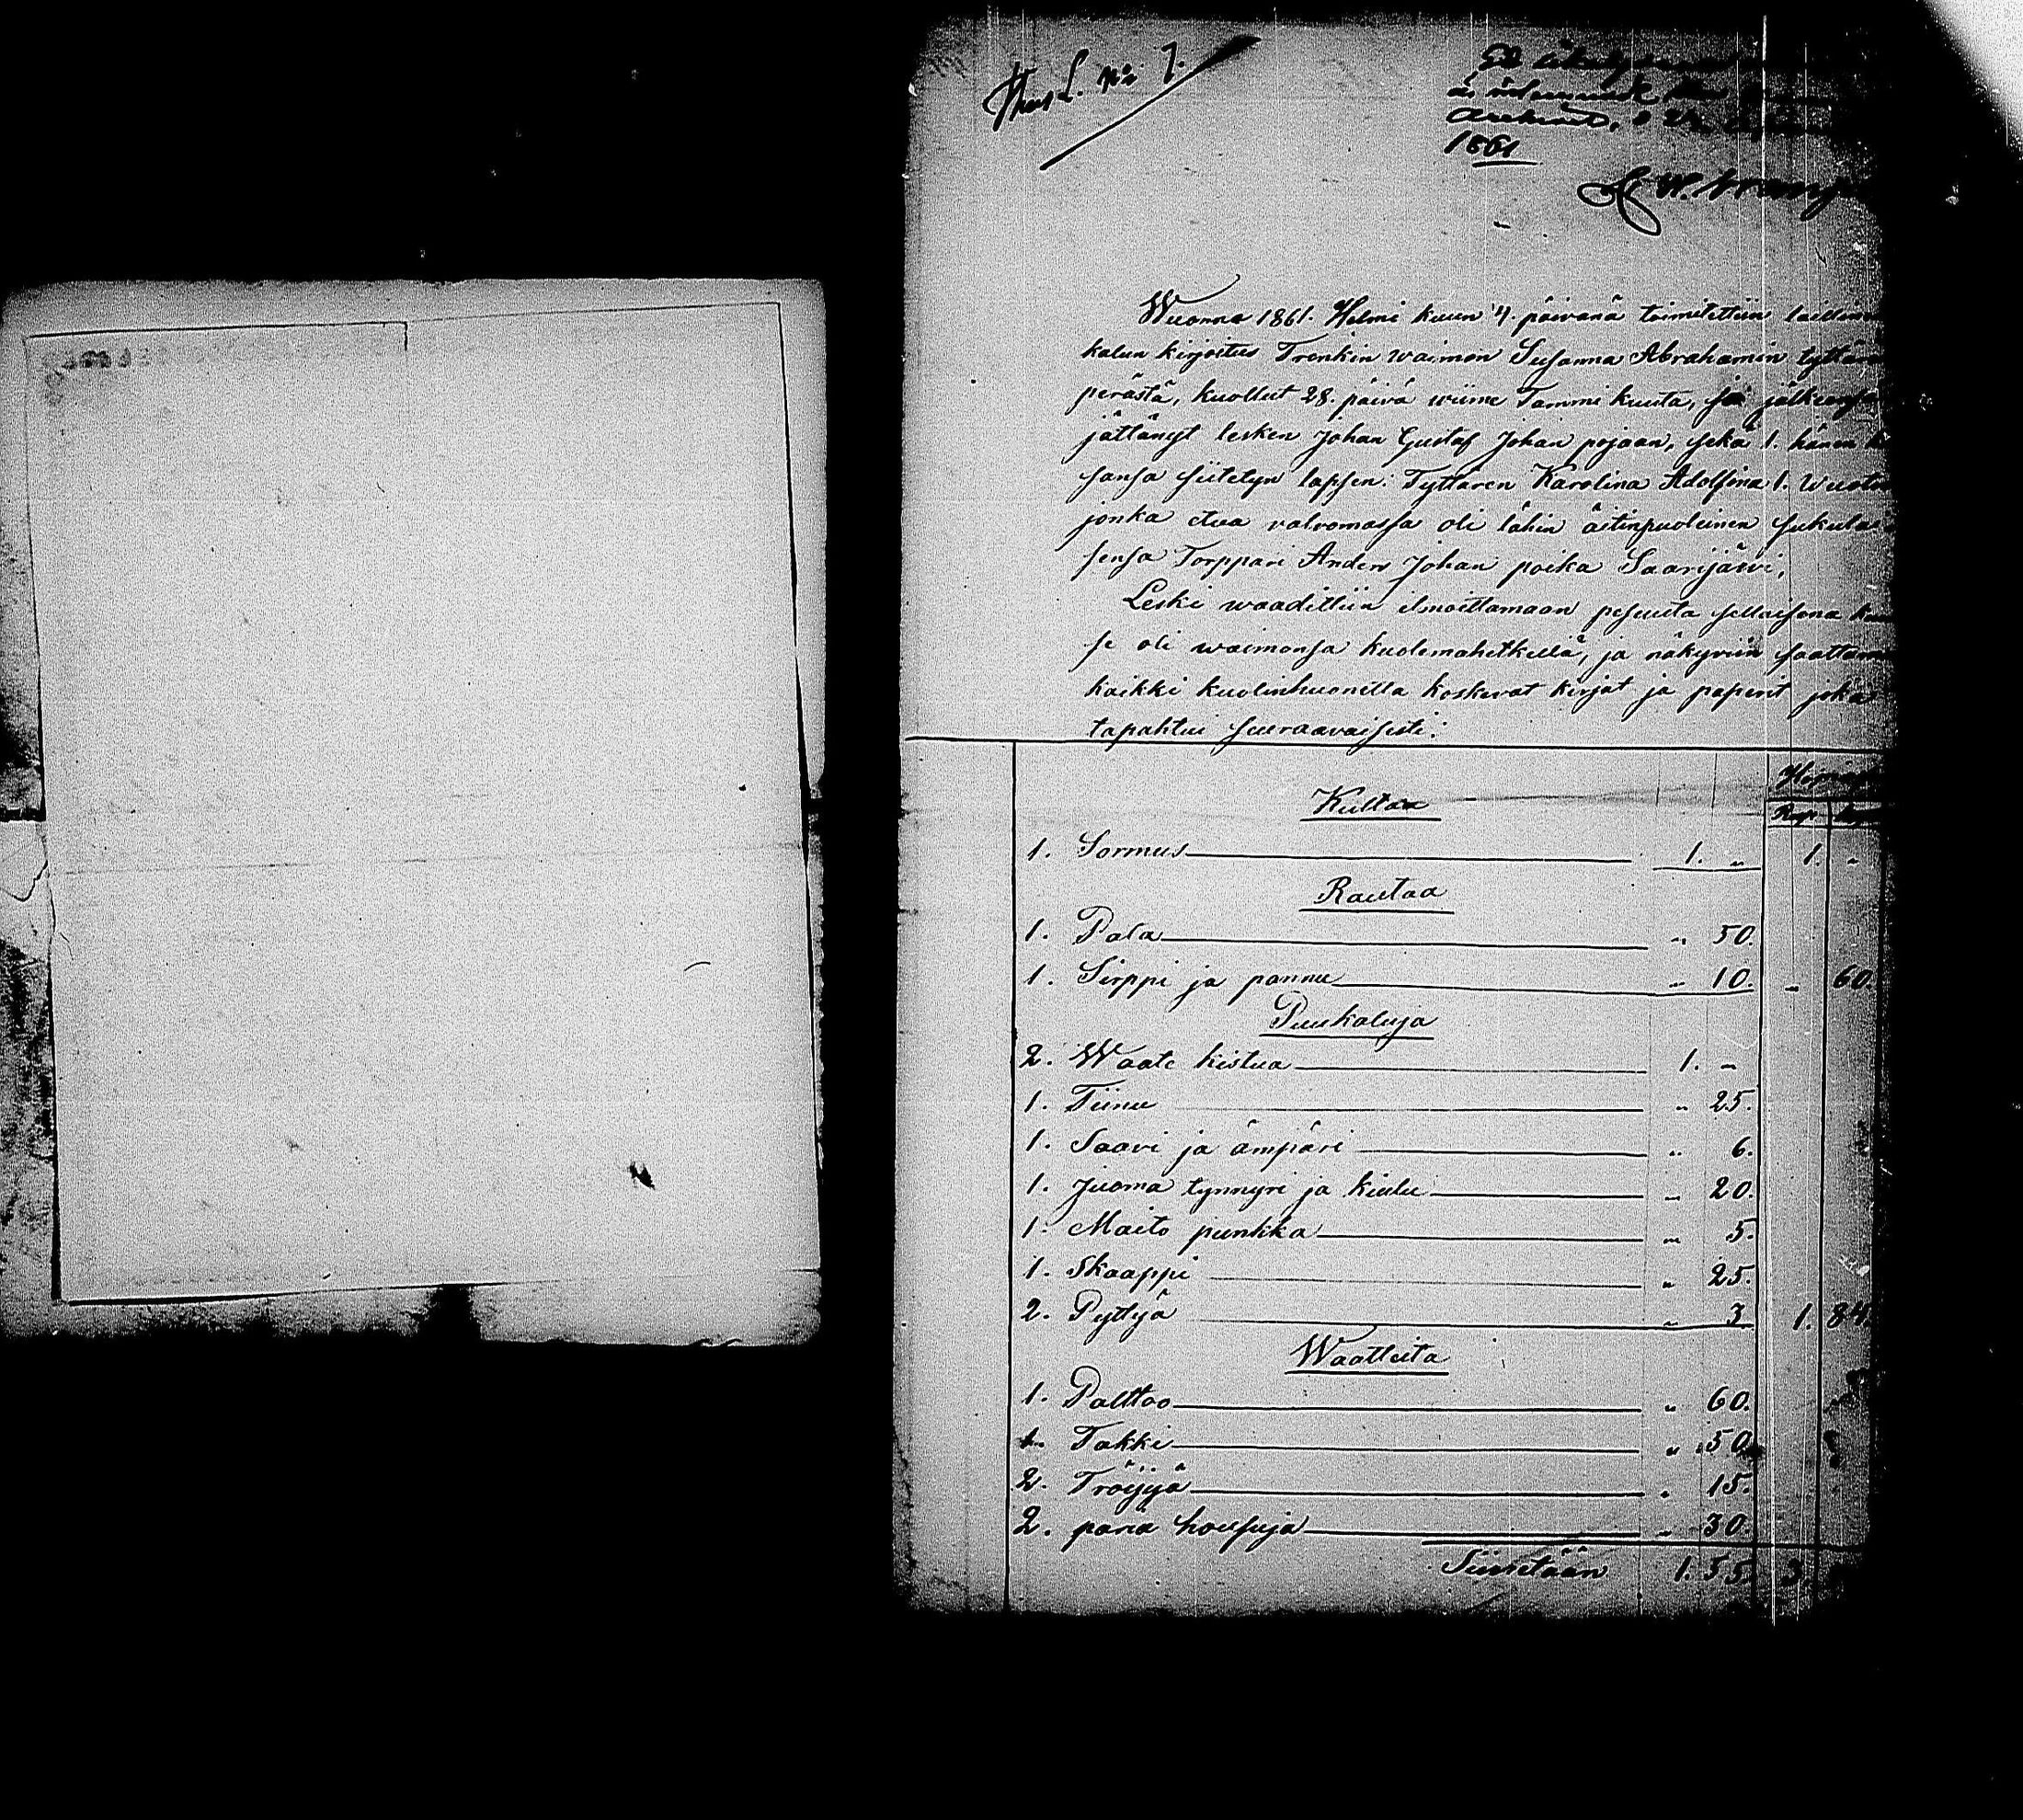 No 7.
1861
Wuonna 1861. Helmi kuun 4. päivänä toimitettiin
kalun kirjoitus Trenkin waimon Susanna Abrahamin
perästä, kuollut 28. päivä wiime Tammi kuuta, ja
jättänyt lesken Johan Gustaf Johan pojaan, sekä 1. hänen
sansa siitetyn lapsen: Tyttären Karolina Adolfina 1.
jonka etua valvomassa oli lähin äitinpuoleinen
sensa Torppari Anders Johan poika Saarijärvi,
Leski waadittiin ilmoittamaan pesuuta sellaisena
se oli waimonsa kuolemahetkellä, ja näkyviin
kaikki kuolinhuonetta koskevat kirjat ja paperit joka
tapahtui seuraavaisesti:
Rup.
Kultaa
1. Sormus 1. " 1. "
Rautaa
1. Pata " 50.
1. Sirppi ja pannu " 10. " 60.
Puukaluja
2. Waate kistua 1. "
1. Tiinu " 25.
1. Saavi ja ämpäri " 6.
1. Juoma tynnyri ja kiulu " 20.
1. Maito punkka " 5.
1. Skaappi " 25.
2. Pyttyä " 3 1. 84.
Waatteita
1. Palttoo " 60.
1. Takki " 50
2. Tröijyä " 15.
2. paria housuja " 30
Siirretään 1. 55. 3.